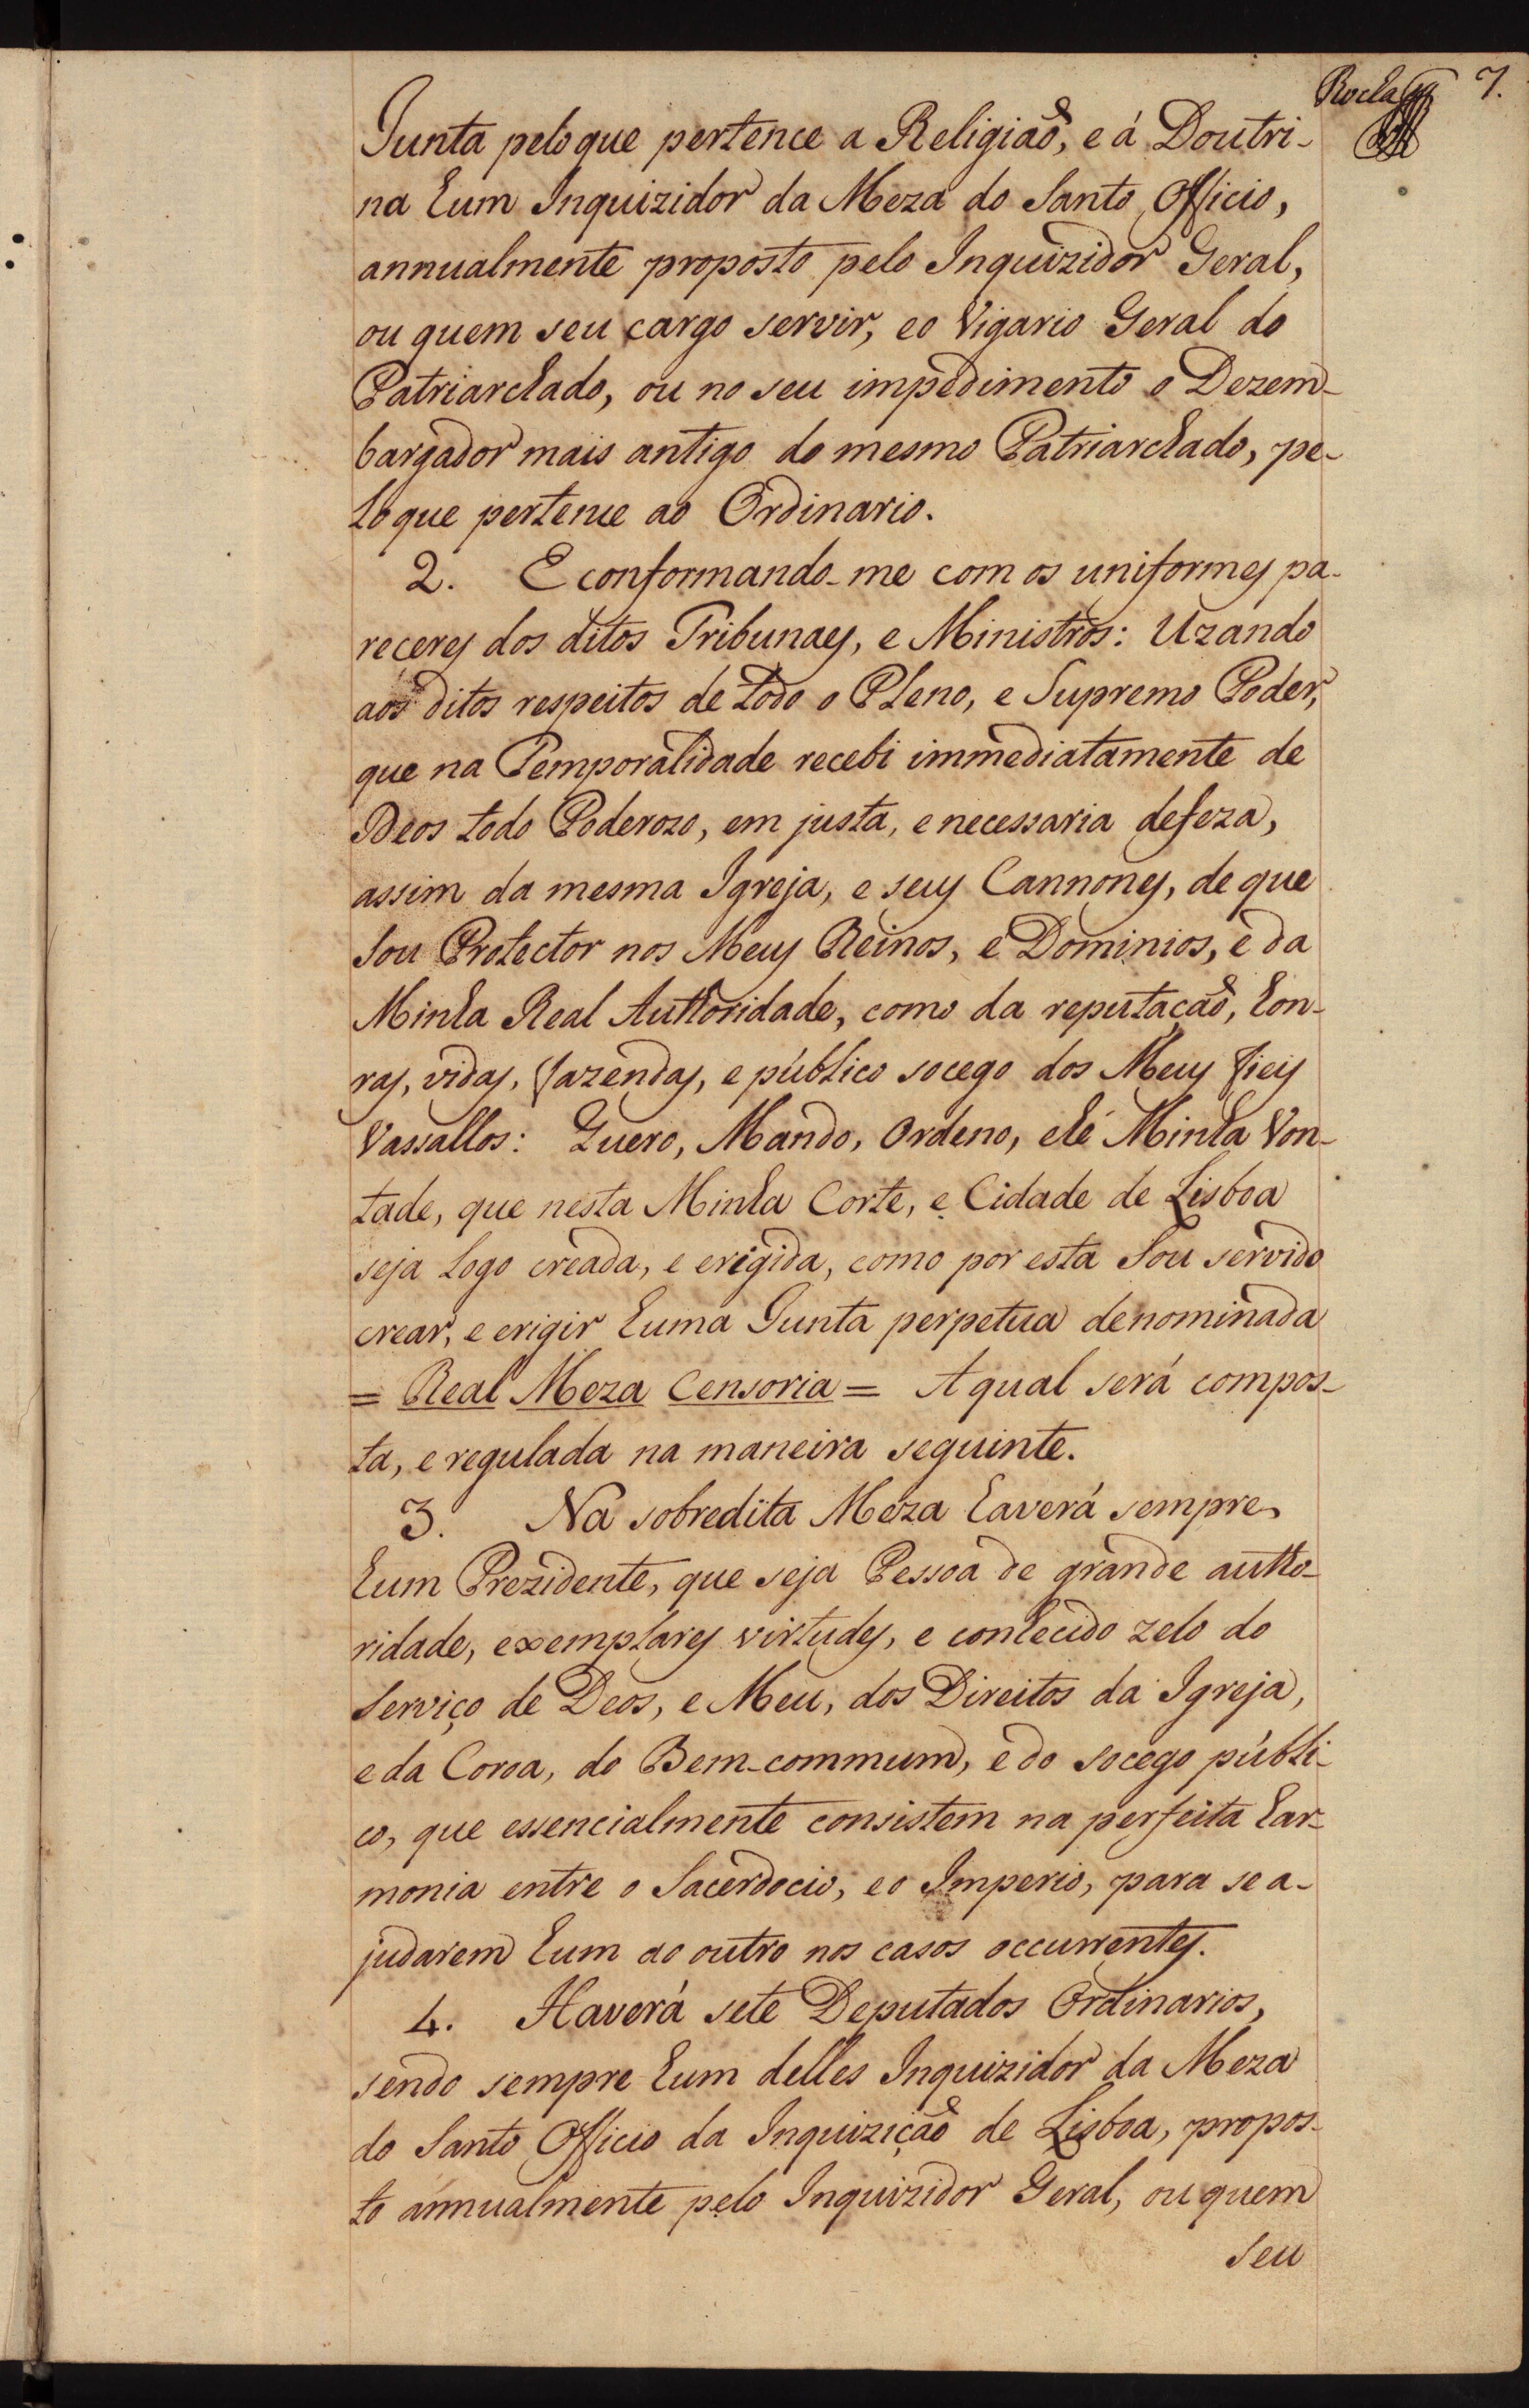 Rocha 7.
Junta pelo que pertence a Religiaõ, e á Doutri-
na hum Inquizidor da Meza do Santo Officio,
annualmente proposto pelo Inquizidor Geral,
ou quem seu cargo servir, e o Vigario Geral do
Patriarchado, ou no seu impedimento o Dezem-
bargador mais antigo do mesmo Patriarchado, pe-
lo que pertence ao Ordinario.
2. E conformando-me com os uniformes pa-
receres dos ditos Tribunaes, e Ministros: Uzando
aos ditos respeitos de todo o Pleno, e Supremo Poder,
que na Temporalidade recebi immediatamente de
Deos todo Poderozo, em justa, e necessaria defeza,
assim da mesma Igreja, e seus Cannones, de que
Sou Protector nos Meus Reinos, e Dominios, e da
Minha Real Authoridade, como da reputaçaõ, hon-
ras, vidas, fazendas, e público socego dos Meus fieis
Vassallos: Quero, Mando, Ordeno, e hé Minha Von-
tade, que nesta Minha Corte, e Cidade de Lisboa
seja logo creada, e erigida, como por esta Sou servido
crear, e erigir huma Junta perpetua denominada
= Real Meza Censoria = A qual será compos-
ta, e regulada na maneira seguinte.
3. Na sobredita Meza haverá sempre
hum Prezidente, que seja Pessoa de grande autho-
ridade, exemplares virtudes, e conhecido zelo do
Serviço de Deos, e Meu, dos Direitos da Igreja,
e da Coroa, do Bem-commum, e do socego públi-
co, que essencialmente consistem na perfeita har-
monia entre o Sacerdocio, e o Imperio, para se a-
judarem hum ao outro nos casos occurrentes.
4. Haverá sete Deputados Ordinarios,
sendo sempre hum delles Inquizidor da Meza
do Santo Officio da Inquiziçaõ de Lisboa, propos-
to annualmente pelo Inquizidor Geral, ou quem
seu